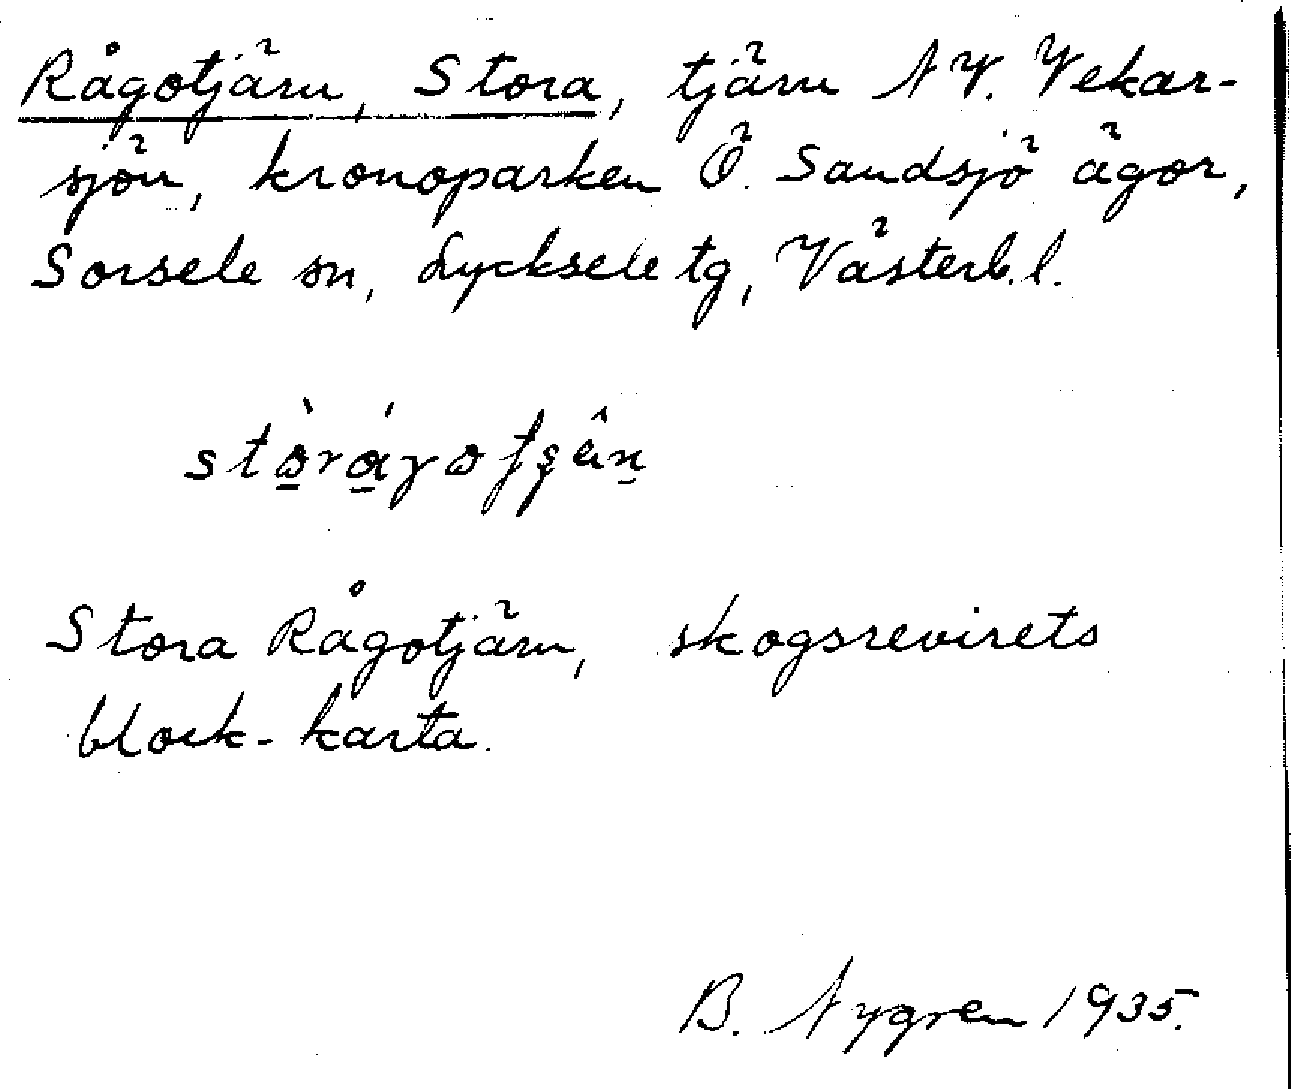 Rågotjärn, Stora, tjärn NV. Vekar-
sjön, kronoparken Ö. Sandsjö ägor,
Sorsele sn, Lycksele tg, Västerb. l.
Stora Rågotjärn, skogsrevirets
block-karta.
B. Nygren 1935.